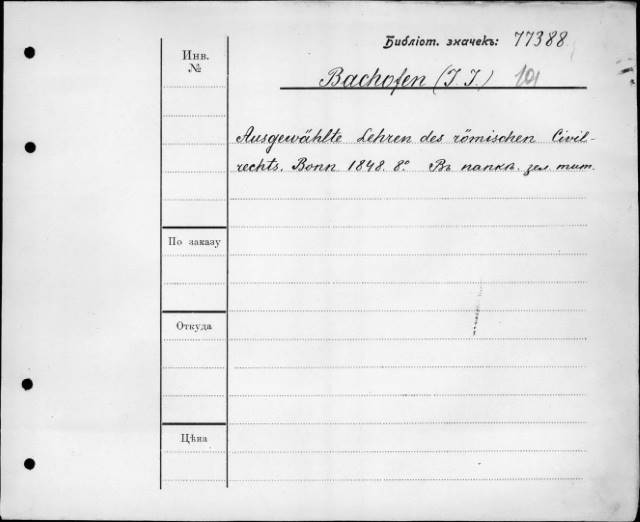 Библіот. значекъ: 77388
Инв.
№
Bachofen (J. J.) 101
Ausgewählte Lehren des römischen Civil-
rechts. Bonn 1848. 8°. Въ папкѣ. зел. тит.
По заказу
Откуда
Цѣна